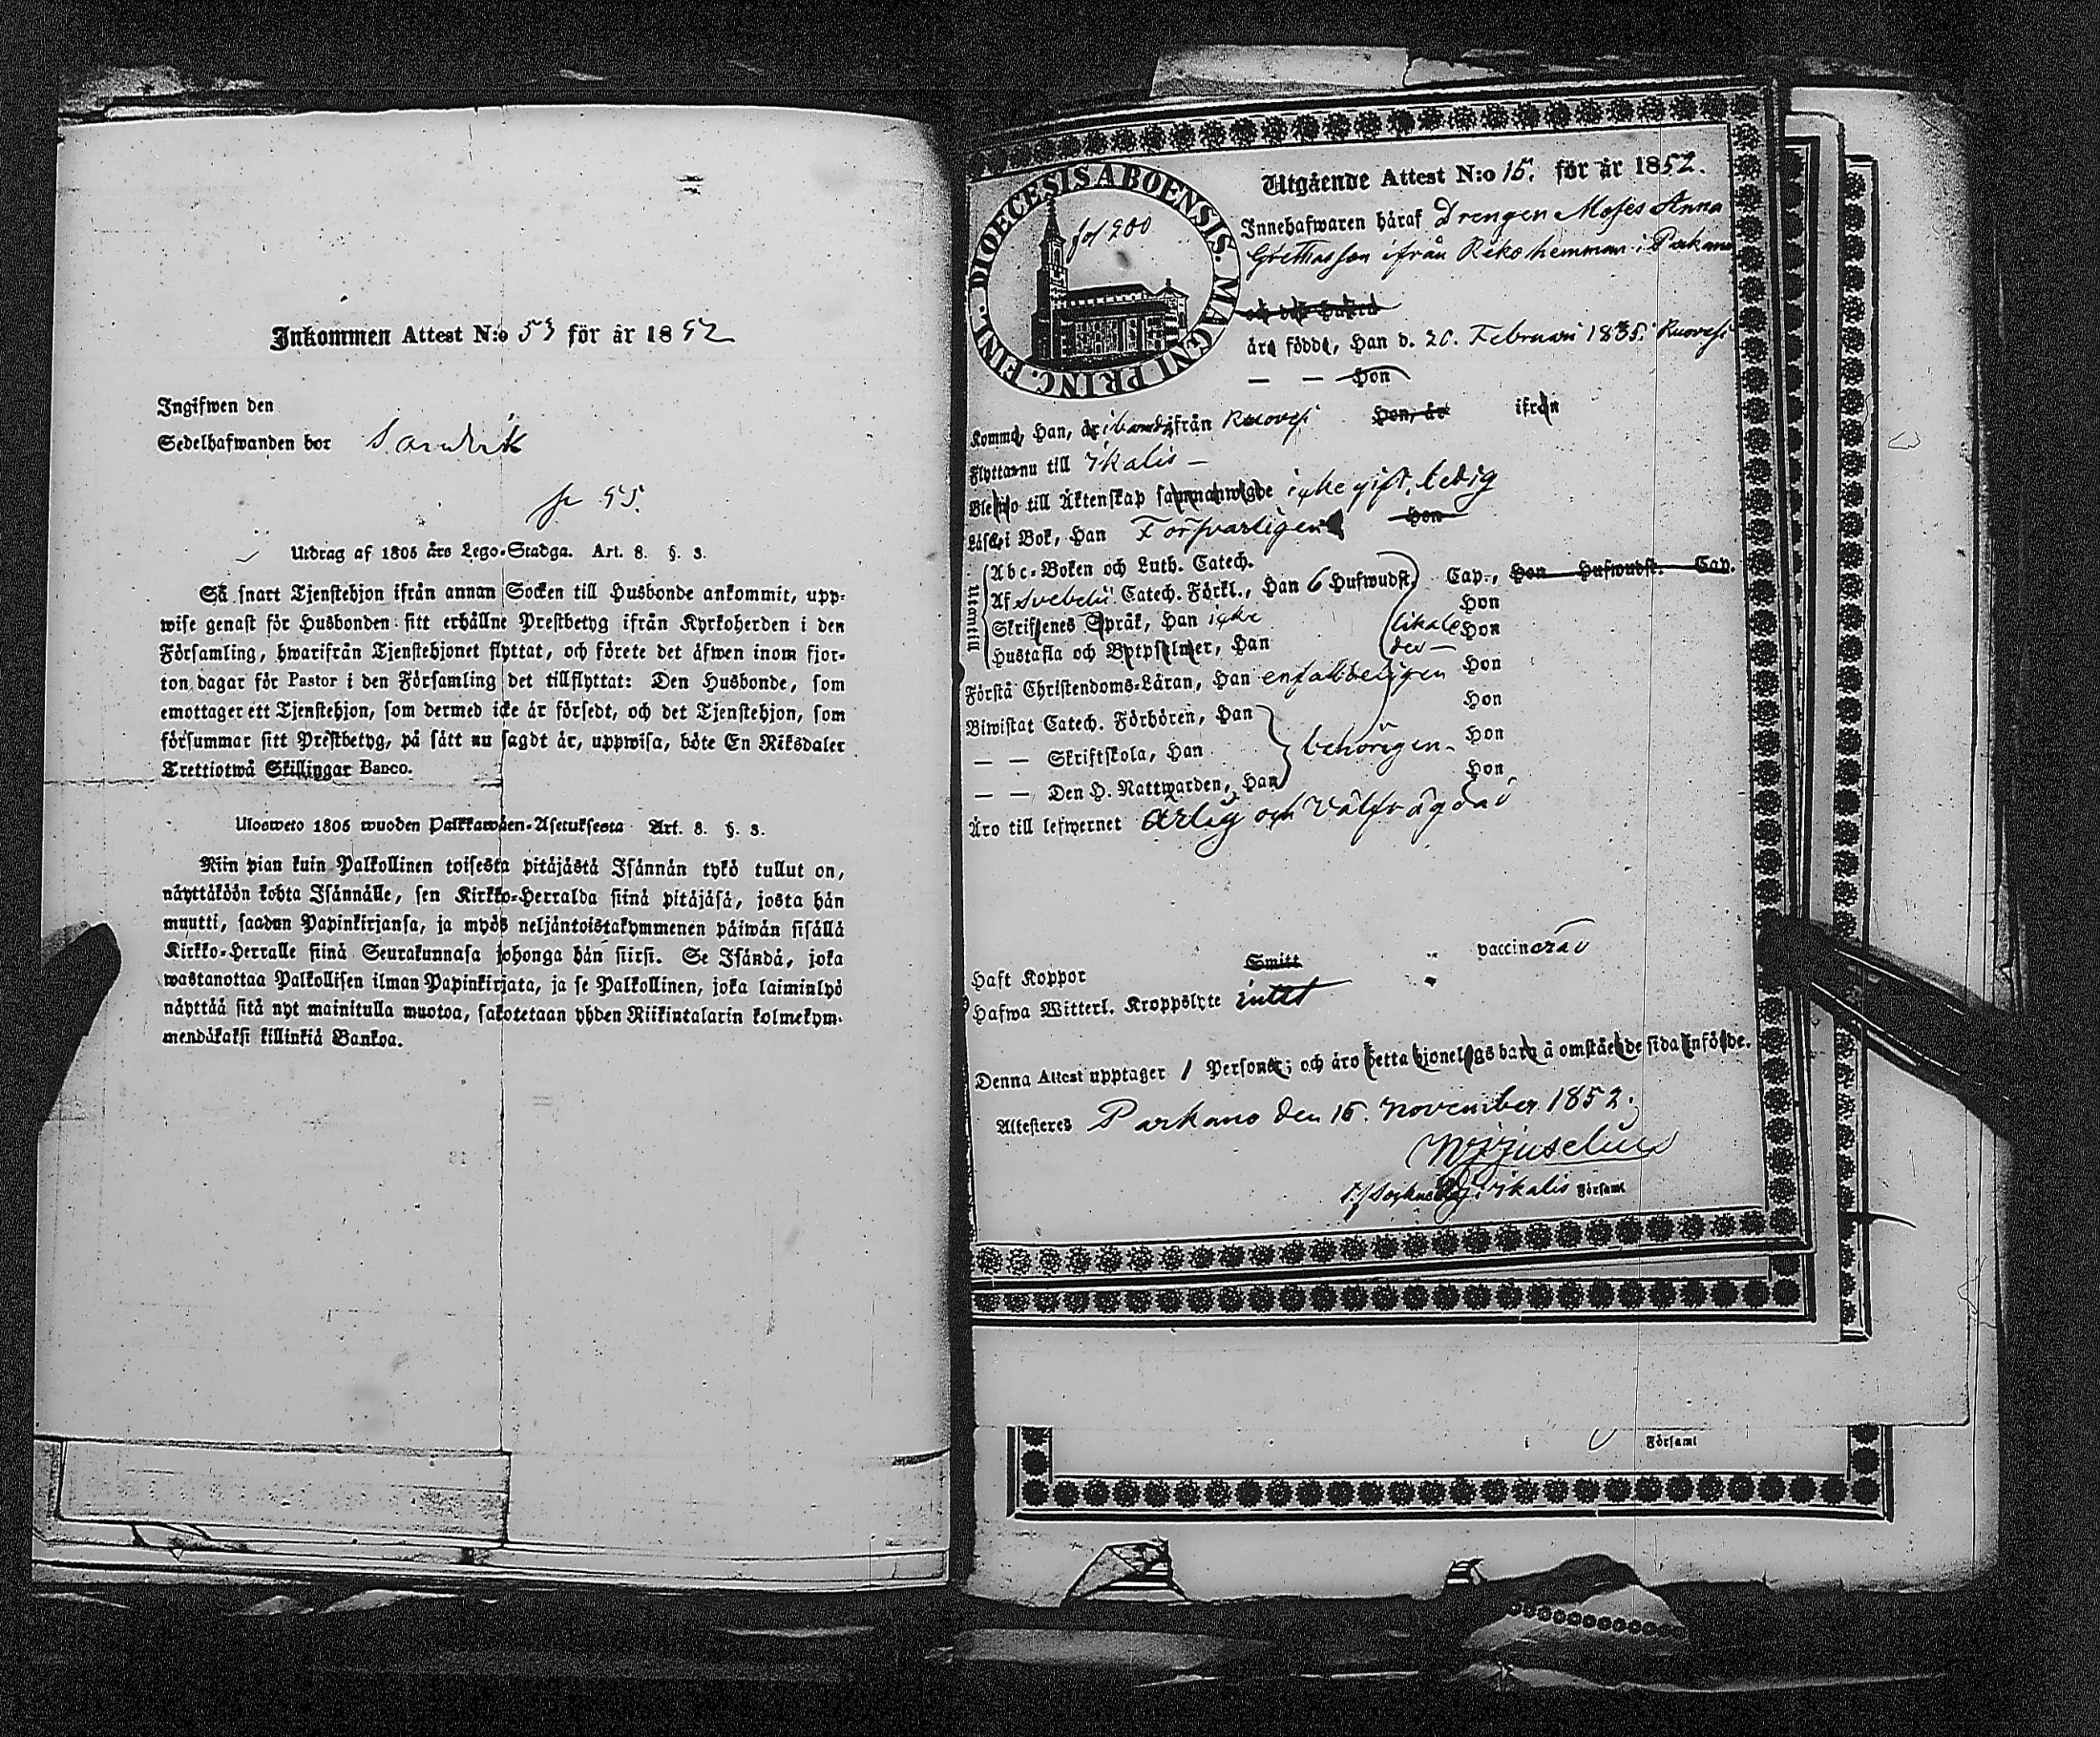 Inkommen Attest N:o 53 för år 1852
Ingifwen den
Sedelhafwanden bor
55.
Utdrag af 1805 års Lego-Stadga. Art. 8. §. 3.
Så snart Tjenstehjon ifrån annan Socken till Husbonde ankommit, upp-
wise genast för Husbonden sitt erhållne Prestbetyg ifrån Kyrkoherden i den
Församling, hwarifrån Tjenstehjonet flyttat, och förete det äfwen inom fjor-
ton dagar för Pastor i den Församling det tillflyttat: Den Husbonde, som
emottager ett Tjenstehjon, som dermed icke är försedt, och det Tjenstehjon, som
försummar sitt Prestbetyg, på sätt nu sagdt är, uppwisa, böte En Riksdaler
Trettiotwå Skillingar Banco.
Ulosweto 1805 wuoden Palkkawäen-Asetuksesta Art. 8. §. 3.
Niin pian kuin Palkollinen toisesta pitäjästä Isännän tykö tullut on,
näyttäköön kohta Isännälle, sen Kirkko-Herralda siinä pitäjäsä, josta hän
muutti, saadun Papinkirjansa, ja myös neljäntoistakymmenen päiwän sisällä
Kirkko-Herralle siinä Seurakunnasa johonga hän siirsi. Se Isändä, joka
wastanottaa Palkollisen ilman Papinkirjata, ja se Palkollinen, joka laiminlyö
näyttää sitä nyt mainitulla muotoa, sakotetaan yhden Riikintalarin kolmekym-
mendäkaksi killinkiä Bankoa.
DIOECESIS ABOENSIS. MAGNI PRINC. FINL.
fol 200
Utgående Attest N:o 15. för år 1852.
Innehafwaren häraf Drengen Moses Anna
Grethasson ifrån Riko hemman i Parkano
och dess Hustru
äro födde, Han d. 20. Februari 1835. Ruovesi
— — Hon
Komme, Han, år ifrån Ruovesi Hon, år ifrån
Flytta nu till Ikalis —
Blefwo till Äktenskap sammanwigde icke gift, ledig
Läser i Bok, Han Förswarligen Hon
Utantill
Abc-Boken och Luth. Catech.
Af Svebelii Catech. Förkl., Han 6 Hufwudst. Cap., Hon Hufwudst. Cap.
Skriftenes Språk, Han icke Hon
Hustafla och Botpsalmer, Han likale des — Hon
Förstå Christendoms-Läran, Han enfaldeligen Hon
Biwistat Catech. Förhören, Han Hon
— — Skriftskola, Han behörigen. Hon
— — Den H. Nattwarden, Han Hon
Äro till lefwernet ärlig och välfrägdad
Haft Koppor Smitt " vaccinerad
Hafwa Witterl. Kroppslyte intet "
Denna Attest upptager 1 Personer; och äro detta hjonelags barn å omstående sida införde.
Attesteres Parkano den 15. November 1852.
Ikalis Församl
i Församl